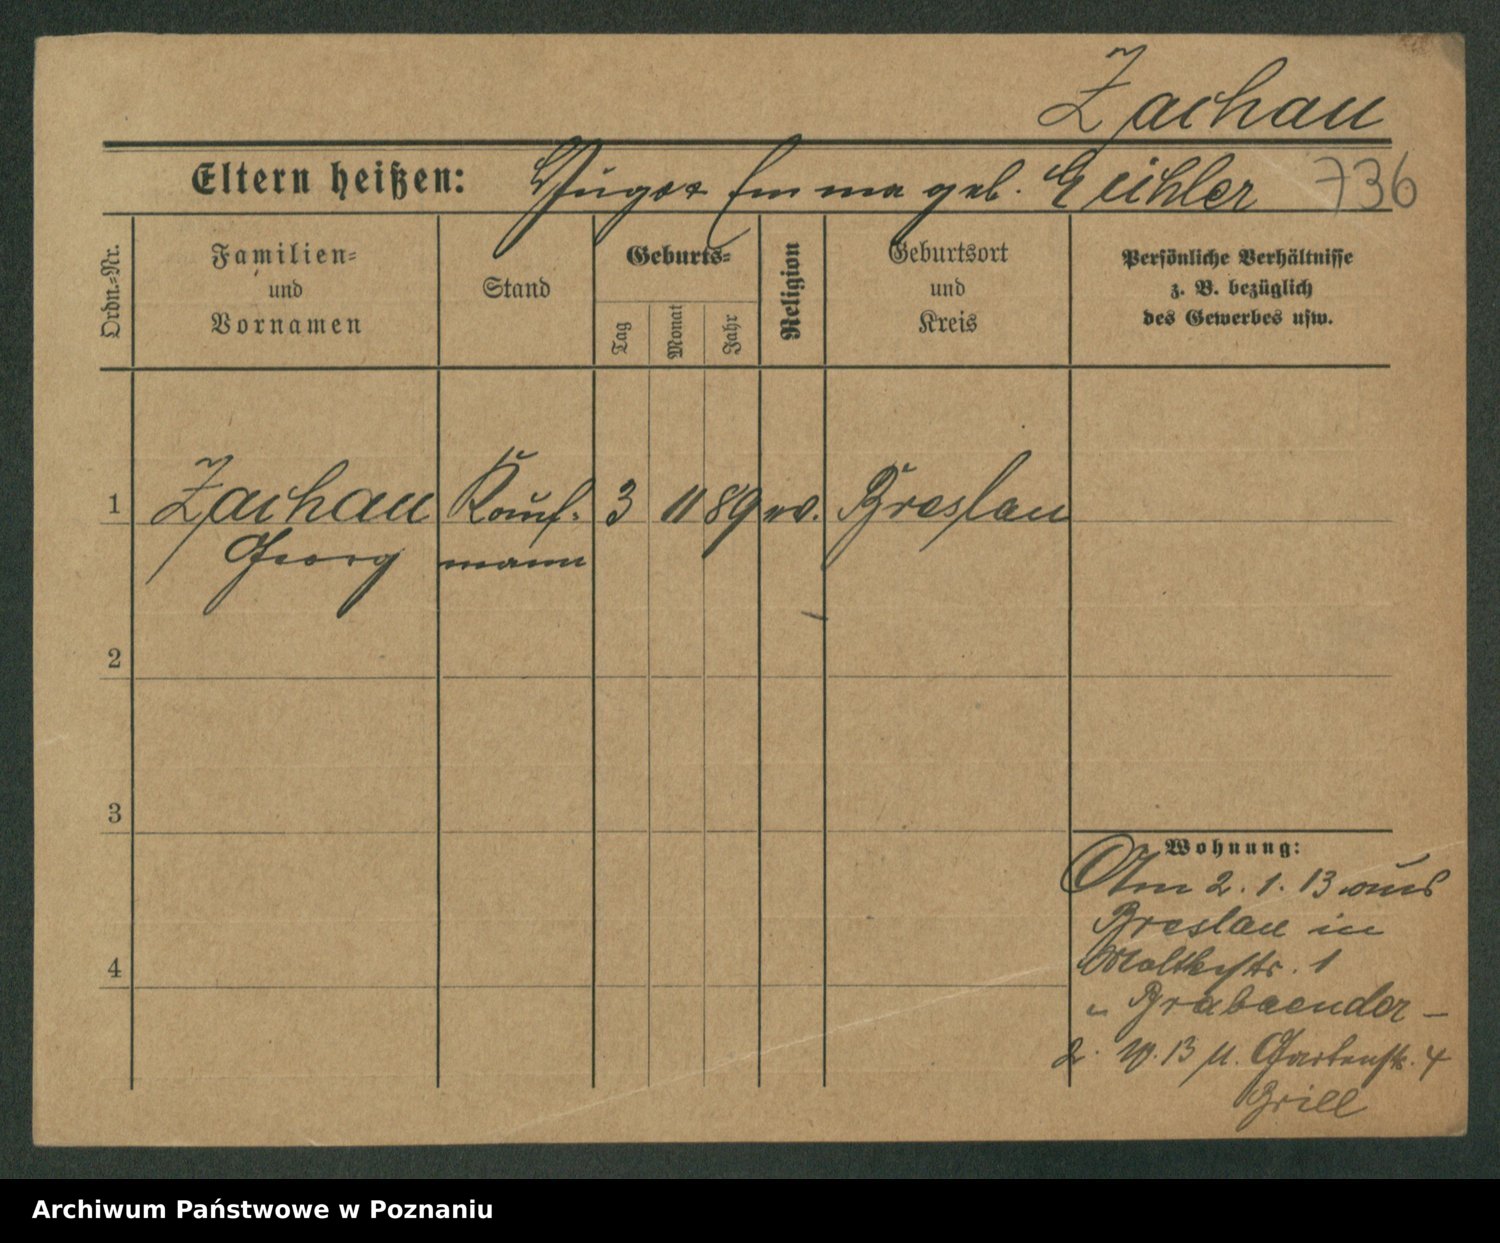 Zachau
Eltern heißen: Emma geb. Eichler 736
Ordn.=Nr.
Familien=
und
Vornamen
Stand
Geburts=
Tag
Monat
Jahr
Religion
Geburtsort
und
Kreis
Persönliche Verhältnisse
z. B. bezüglich
des Gewerbes usw.
1 Zachau Kauf- 3 11 89 ev. Breslau
Georg mann
2
3
4
Wohnung:
Am 2. 1. 13 aus
Breslau in
Moltkestr. 1
2. 13 Gartenstr. 4
Brill
Archiwum Państwowe w Poznaniu